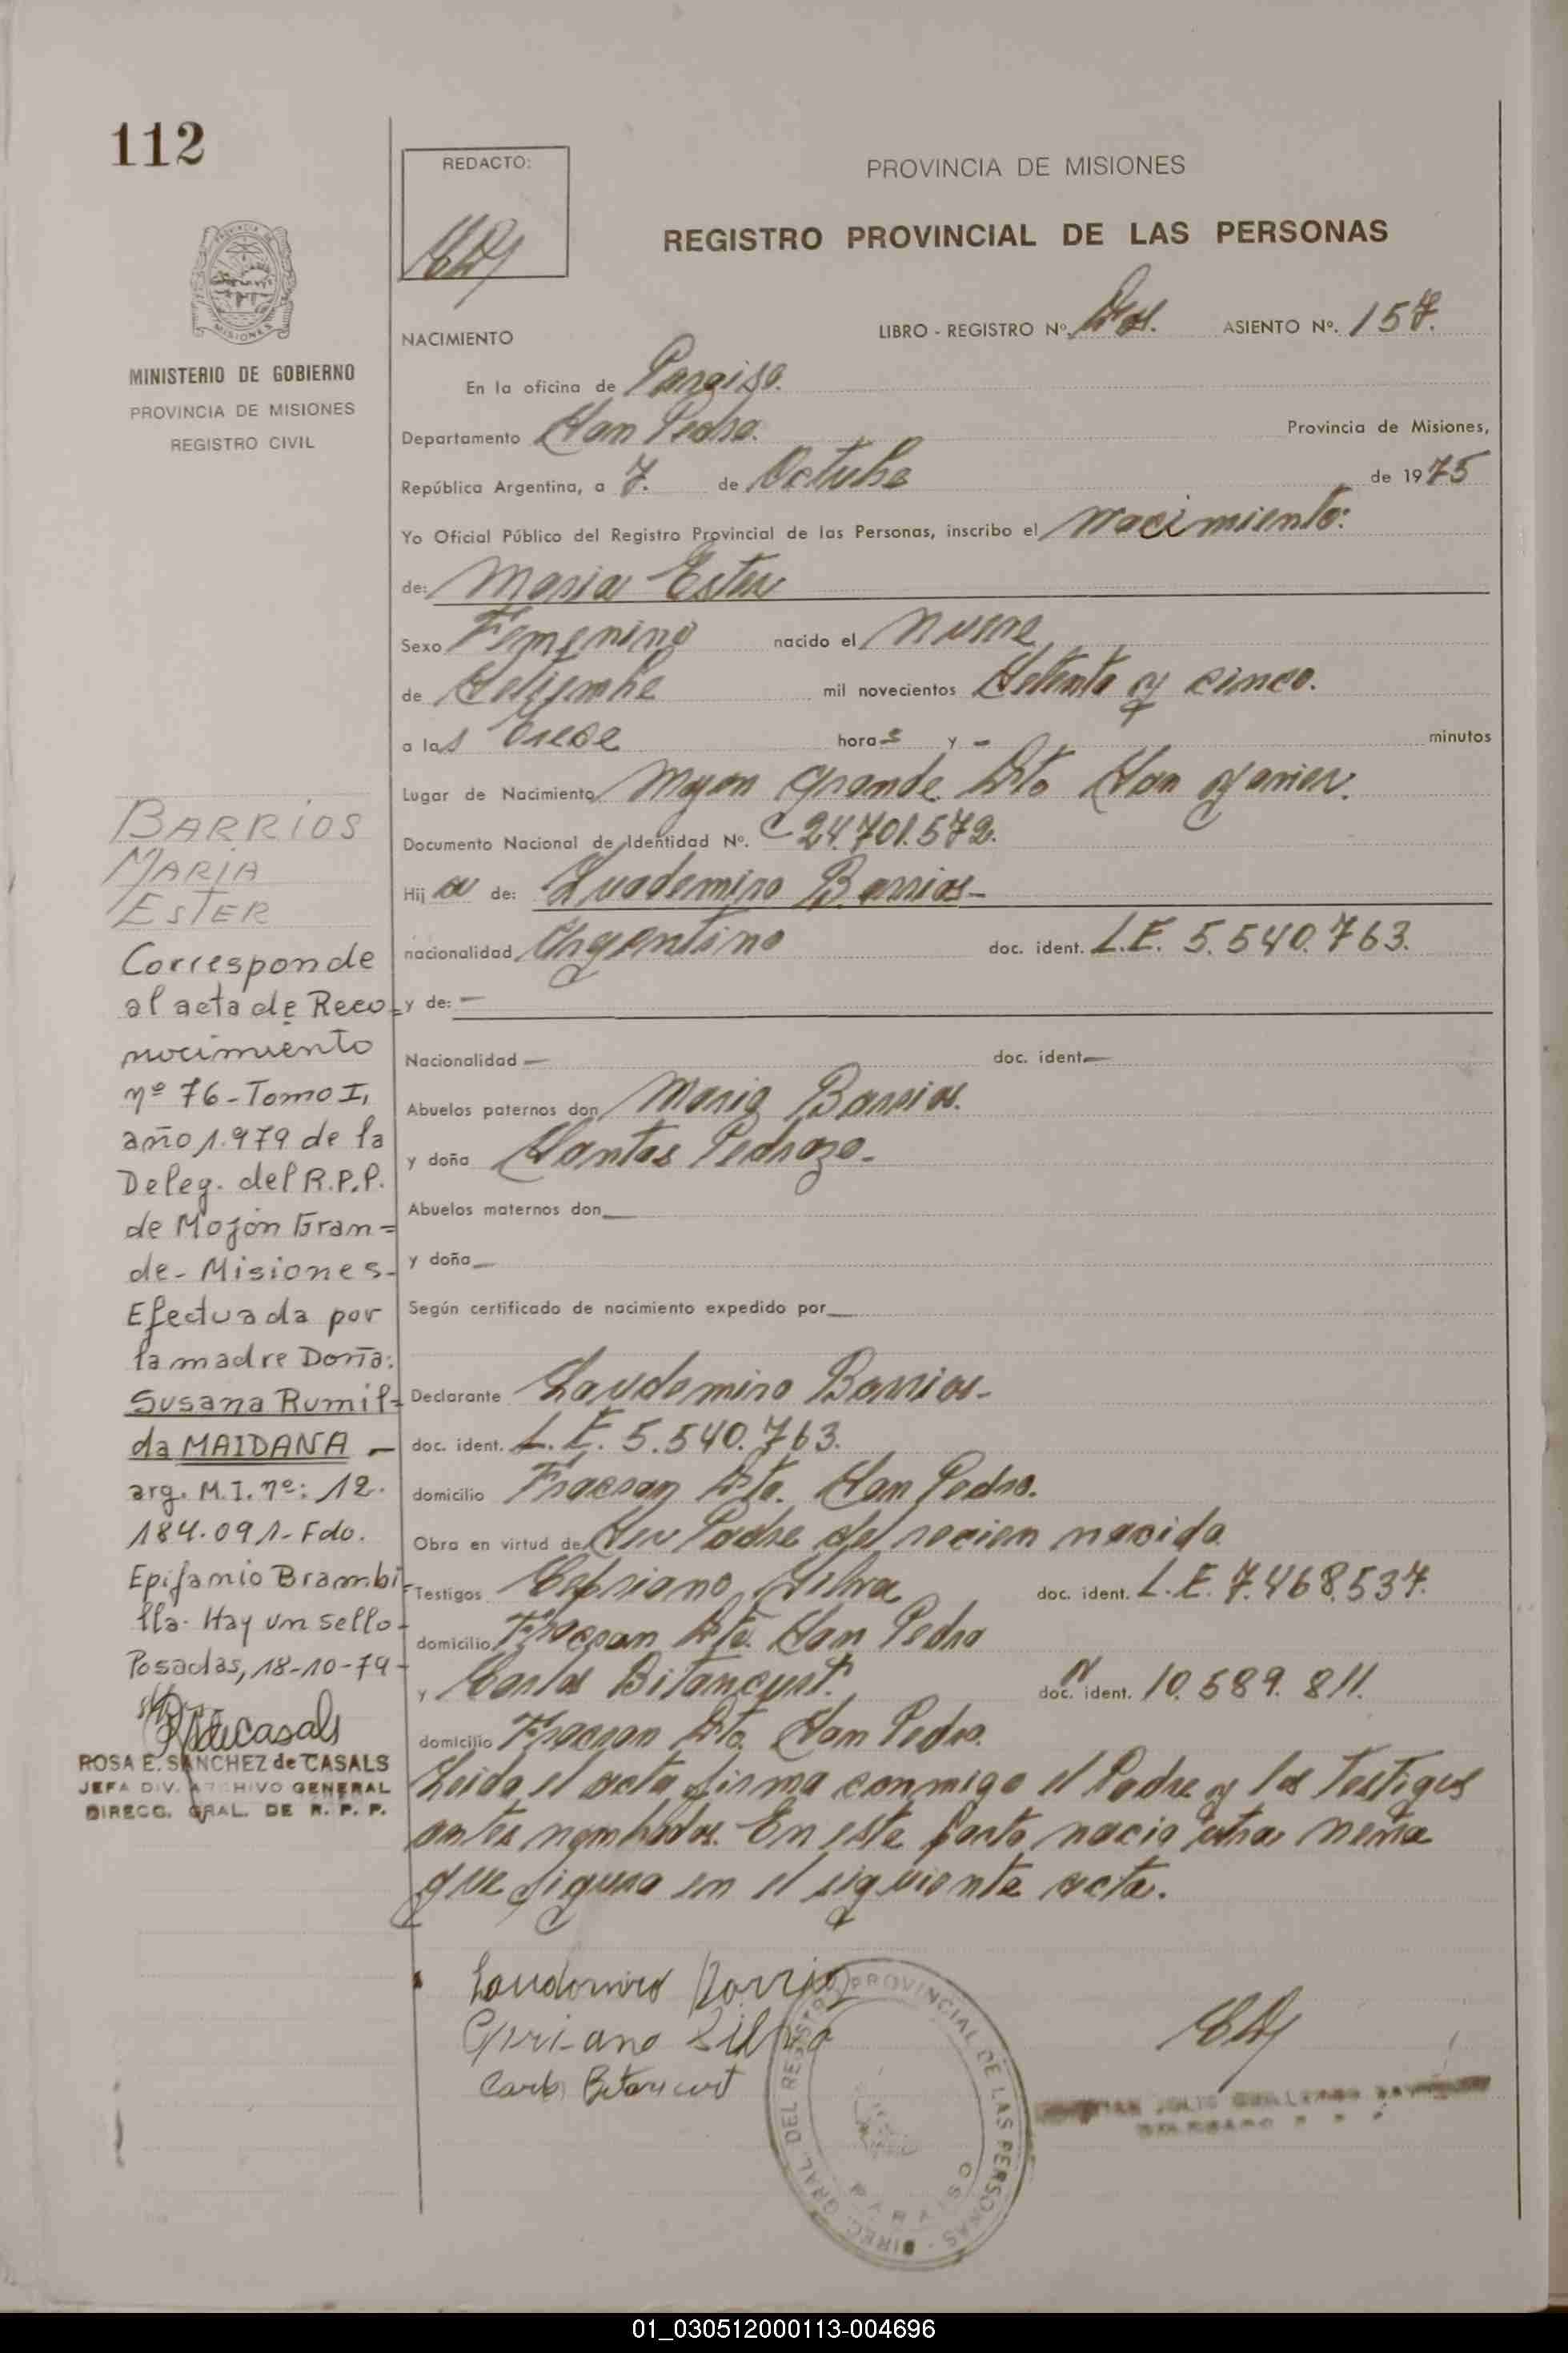 112
REDACTO:
PROVINCIA DE MISIONES
REGISTRO PROVINCIAL DE LAS PERSONAS
PROVINCIA DE MISIONES
MINISTERIO DE GOBIERNO
PROVINCIA DE MISIONES
REGISTRO CIVIL
LIBRO - REGISTRO Nº Dos. ASIENTO Nº. 157.
NACIMIENTO
En la oficina de Paraiso.
Departamento San Pedro. Provincia de Misiones,
República Argentina, a 7. de Octubre de 1975
Yo Oficial Público del Registro Provincial de las Personas, inscribo el nacimiento:
de: Maria Ester
Sexo Femenino nacido el nueve
de Setiembre mil novecientos Setenta y cinco.
a las trece horas y - minutos
Lugar de Nacimiento Mojon Grande Dto San Javier.
Documento Nacional de Identidad Nº. 24.701.572.
Hija de: Luademiro Barrios-
nacionalidad Argentino doc. ident. L.E. 5.540.763.
y de: —
Nacionalidad — doc. ident. —
Abuelos paternos don Mario Barrios.
y doña Santos Pedrozo-
Abuelos maternos don —
y doña —
Según certificado de nacimiento expedido por —
Declarante Laudemiro Barrios-
doc. ident. L.E. 5.540.763.
domicilio Fracran Dto. San Pedro.
Obra en virtud de Ser Padre del recien nacido
Testigos Cipriano Silva doc. ident. L.E. 7.468.537.
domicilio Fracran Dto. San Pedro
y Carlos Bitancurt. doc. ident. 10.589.811.
domicilio Fracran Dto. San Pedro.
Leida el acta firma conmigo el Padre y los Testigos
antes nombrados. En este parto nacio otra nena
que figura en el siguiente acta.
BARRIOS
MARIA
ESTER
Corresponde
al acta de Reco=
nocimiento
nº 76-Tomo I,
año 1.979 de la
Deleg. del R.P.P.
de Mojón Gran=
de- Misiones-
Efectuada por
la madre Doña:
Susana Rumil=
da MAIDANA —
arg. M.I. nº: 12.
184.091- Fdo.
Epifanio Brambi=
lla. Hay un sello-
Posadas, 18-10-79-
ROSA E. SANCHEZ de CASALS
JEFA DIV. ARCHIVO GENERAL
DIRECC. GRAL. DE R. P. P.
Laudomiro Barrios
Cipriano Silva
Carlos Bitancurt
DIREC. GRAL. DEL REGISTRO PROVINCIAL DE LAS PERSONAS -
PARAISO
01_030512000113-004696